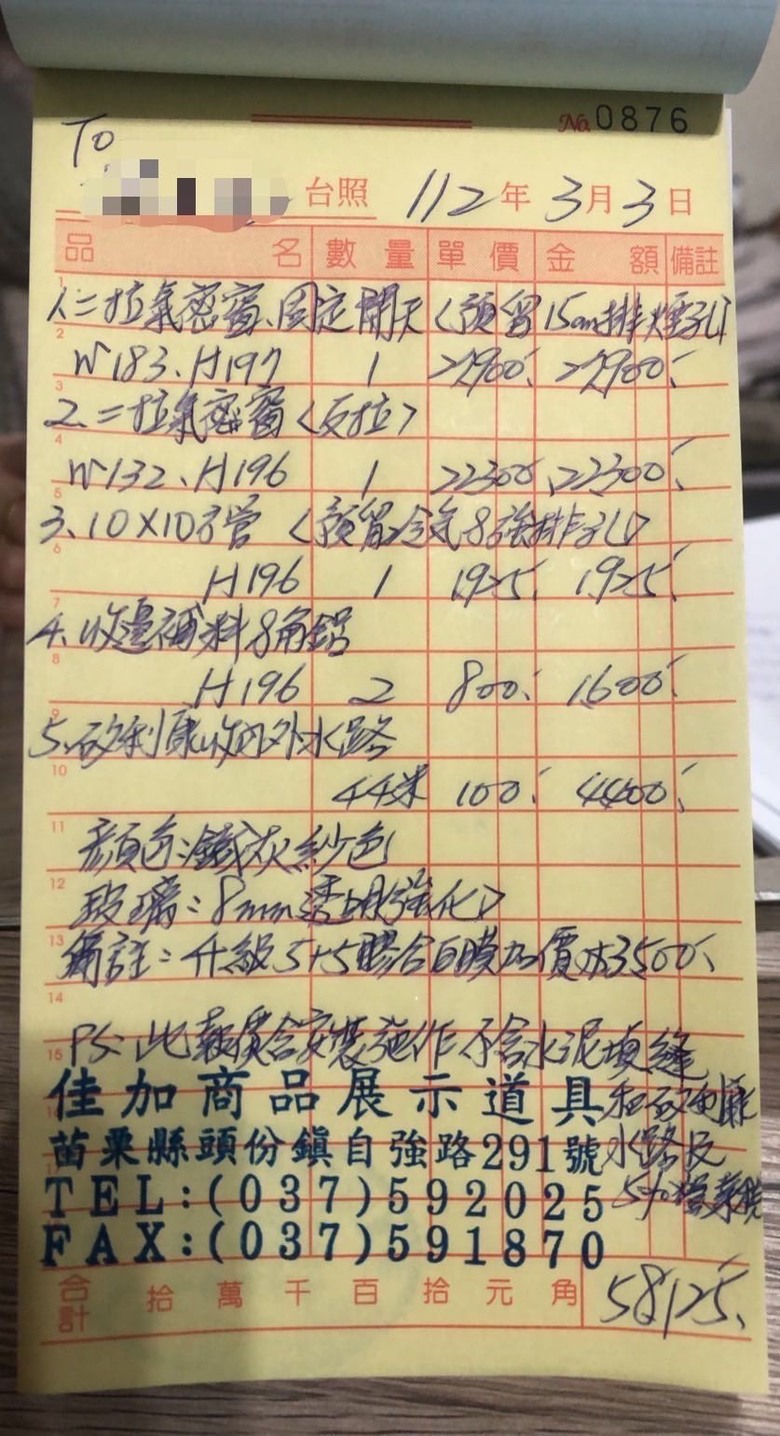 No. 0876
To
台照 112年3月3日
品名 數量 單價 金額 備註
1. 二拉氣密窗、固定開天〈預留15cm排煙孔〉
W183、H197 1 27900 27900
2. 二拉氣密窗〈反拉〉
W132、H196 1 22300 22300
3. 10X10方管〈預留冷氣&強排孔〉
H196 1 1925 1925
4. 收邊補料&角鋁
H196 2 800 1600
5. 矽利康收內外水路
44米 100 4400
顏色:鐵灰紗色
玻璃:8mm透明〈強化〉
備註:升級5+5膠合白膜加價$3500
PS:此報價含安裝施作不含水泥填縫
和矽利康
水路及
5%營業稅
佳加商品展示道具
苗栗縣頭份鎮自強路291號
TEL:(037)592025
FAX:(037)591870
合計 拾 萬 千 百 拾 元 角 58125